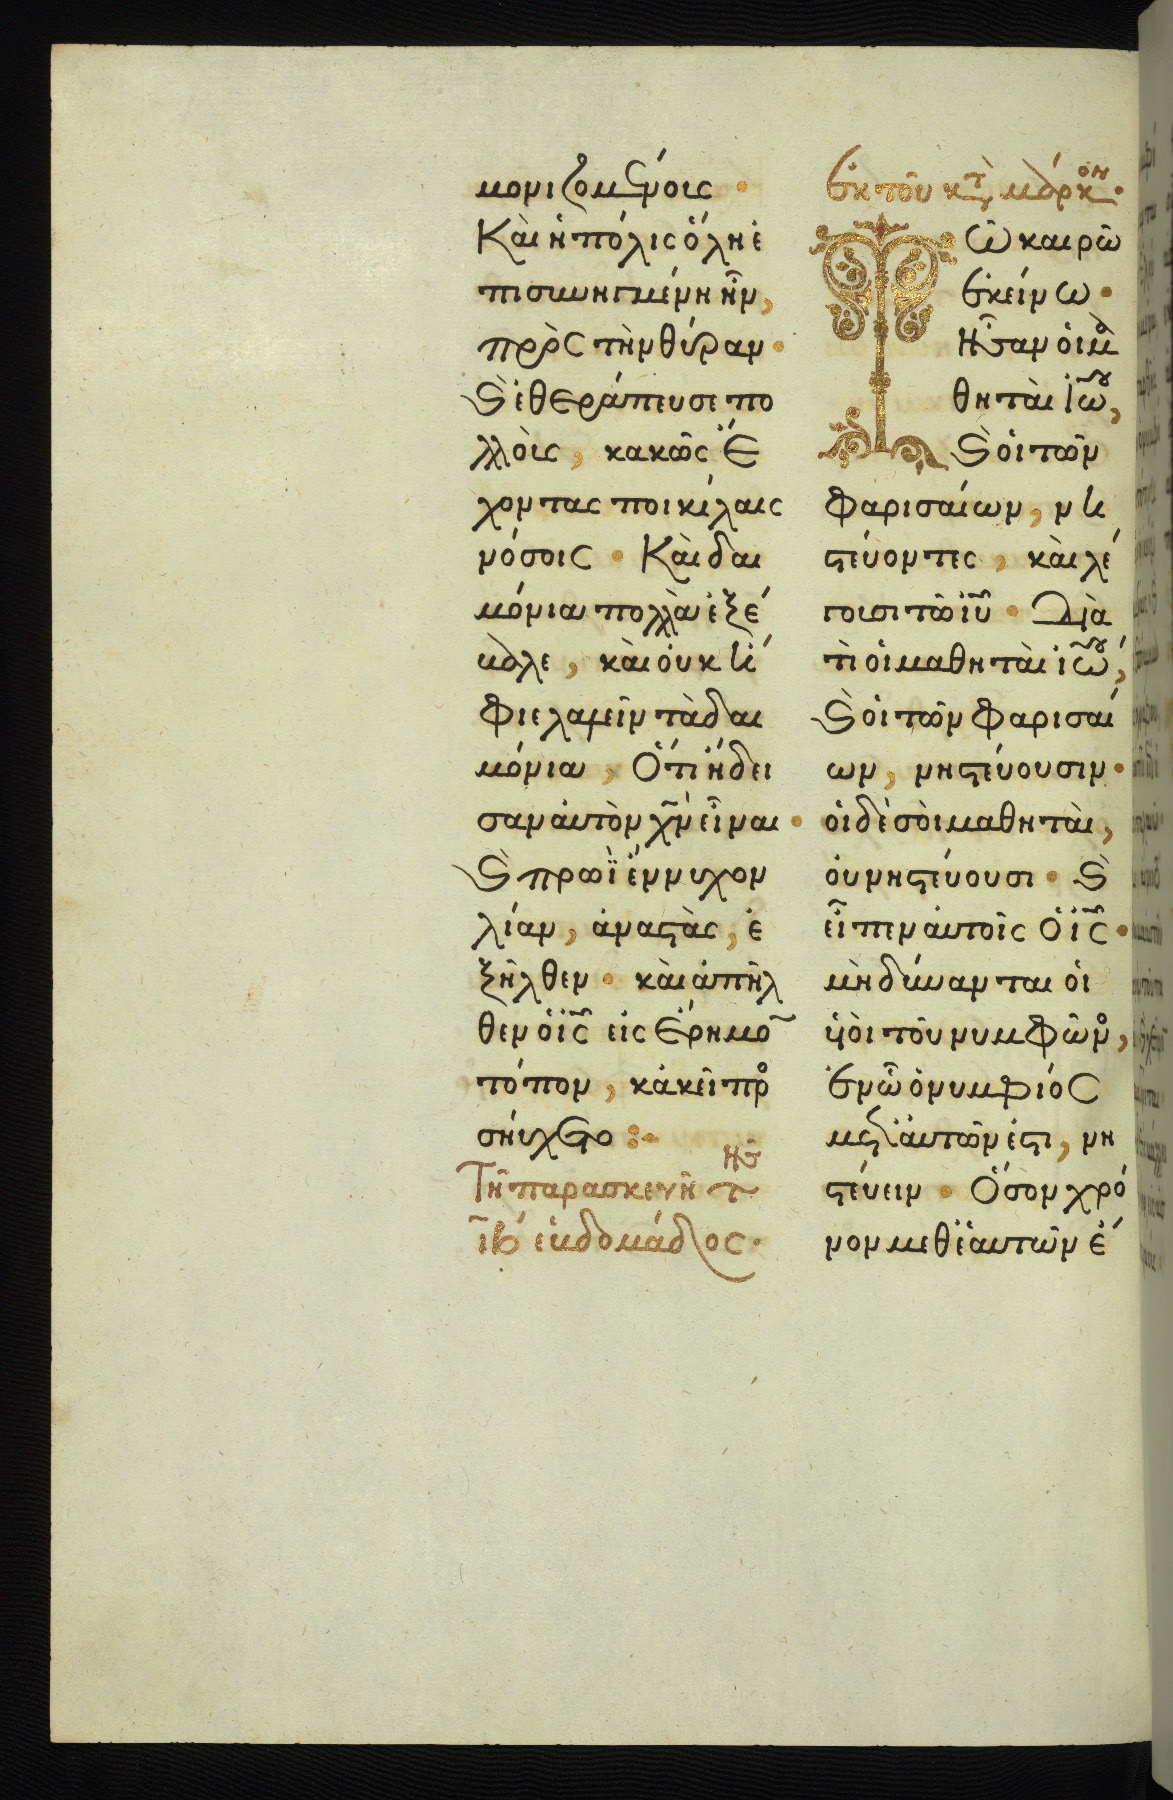 μονιζομένοις·
Καὶ ἡ πόλις ὅλη ἐ
πισυνηγμένη ἦν,
πρὸς τὴν θύραν·
Ϛ̀ ἐθεράπευσε πο
λλοὺς, κακῶς ἔ
χοντας ποικίλαις
νόσοις· Καὶ δαι
μόνια πολλὰ ἐξέ
βαλε, καὶ οὐκ ἠ
φιε λαλεῖν τὰ δαι
μόνια, Ὅτι ἤδει
σαν αὐτὸν χ̅ν̅ εἶναι·
Ϛ̀ πρωῒ ἔννυχον
λίαν, ἀναστὰς, ἐ
ξῆλθεν· καὶ ἀπῆλ
θεν ὁ ἰ̅ς̅ εἰς ἔρημο̅
τόπον, κἀκεῖ προ
σηύχετο:·
Τῆ παρασκευῆ τῆς
ιβ ἑβδομάδος·
Ἐκ τοῦ κατ μάρκον·
Τῶ καιρῶ
ἐκείνω·
Ἦσαν οἱ μα
θηταὶ ἰω̅ου,
Ϛ̀ οἱ τῶν
Φαρισαίων, νη
στεύοντες, καὶ λέ
γουσι τῶ ἰ̅υ̅· Δια
τὶ οἱ μαθηταὶ ἰω̅ου,
Ϛ̀ οἱ τῶν Φαρισαί
ων, νηστεύουσιν·
οἱ δὲ σοὶ μαθηταὶ,
οὐ νηστεύουσι· Ϛ̀
εἶπεν αὐτοῖς ὁ ἰ̅ς̅·
μὴ δύνανται οἱ
ὑϊοὶ τοῦ νυμφῶνο,
ἐν ὧ ὁ νυμφίος
μετ' αὐτῶν ἐστι, νη
στεύειν· Ὅσον χρό
νον μεθ' ἑαυτῶν ἔ